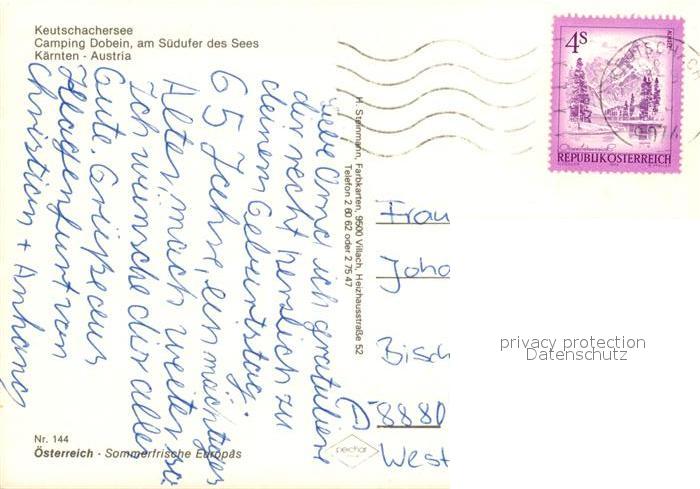 Keutschachersee
Camping Dobein, am Südufer des Sees
Kärnten - Austria
Liebe Oma ich gratuliere
dir recht herzlich zu
deinem Geburtstag.
65 Jahre, ein mächtiges
Alter, mach weiter so
Ich wünsche dir alles
Gute. Grüße aus
Klagenfurt von
Christian + Anhang
Nr. 144
Österreich - Sommerfrische Europas
H. Steinmann, Farbkarten, 9500 Villach, Heizhausstraße 52
Telefon 2 60 62 oder 2 75 47
pechar
4S
REPUBLIK ÖSTERREICH
KEUTSCHACH
Frau
Joha
Bisch
D-8880
West
privacy protection
Datenschutz